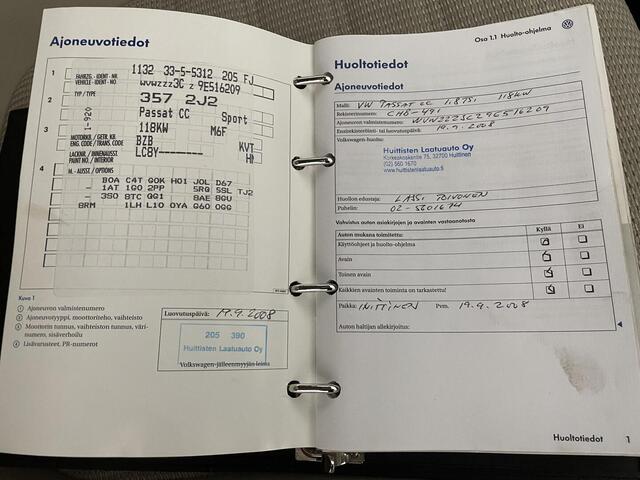 Ajoneuvotiedot
1
FAHRZG.-IDENT.-NR.
VEHICLE-IDENT.-NO.
1132 33-5-5312 205 FJ
WVWZZZ3C Z 9E516209
2
TYP/TYPE
357 2J2
Passat CC Sport
1-920
3
118KW M6F
MOTORKB./GETR.KB.
ENG.CODE/TRANS.CODE
BZB KVT
LACKNR./INNENAUSST.
PAINT NO./INTERIOR
LC8Y--------
4
M.-AUSST./OPTIONS
BOA C4T GOK HO1 JOL D67
1AT 1GO 2PP 5RQ 5SL TJ2
3SO 8TC QG1 8AE 8GU
BRM 1LH L1O OYA Q6O OGG
Kuva 1
1 Ajoneuvon valmistenumero
2 Ajoneuvotyyppi, moottoriteho, vaihteisto
3 Moottorin tunnus, vaihteiston tunnus, väri-
numero, sisäverhoilu
4 Lisävarusteet, PR-numerot
Luovutuspäivä: 19.9.2008
205 390
Huittisten Laatuauto Oy
Volkswagen-jälleenmyyjän leima
Osa 1.1 Huolto-ohjelma
Huoltotiedot
Ajoneuvotiedot
Malli: VW PASSAT CC 1.8TSI 118KW
Rekisterinumero: CHO-491
Ajoneuvon valmistenumero: WVWZZZ3CZ9E516209
Ensirekisteröinti- tai luovutuspäivä: 19.9.2008
Volkswagen-huolto:
Huittisten Laatuauto Oy
Korkeakoskentie 75, 32700 Huittinen
(02) 560 1670
www.huittistenlaatuauto.fi
Huollon edustaja: LASSI TOIVONEN
Puhelin: 02-5601674
Vahvistus auton asiakirjojen ja avainten vastaanotosta
Auton mukana toimitettu: Kyllä Ei
Käyttöohjeet ja huolto-ohjelma
Avain
Toinen avain
Kaikkien avainten toiminta on tarkastettu!
Paikka: HUITTINEN Pvm. 19.9.2008
Auton haltijan allekirjoitus:
Huoltotiedot 1